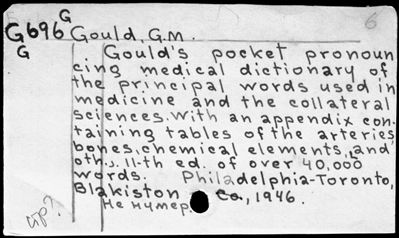 G 6
G696 Gould, G.M.
G Gould's pocket pronoun
cing medical dictionary of
the principal words used in
medicine and the collateral
sciences. With an appendix con-
taining tables of the arteries
bones, chemical elements, and
oth.s. 11-th ed. of over 40,000
words. Philadelphia-Toronto,
Blakiston Co, 1946.
Не нумер.